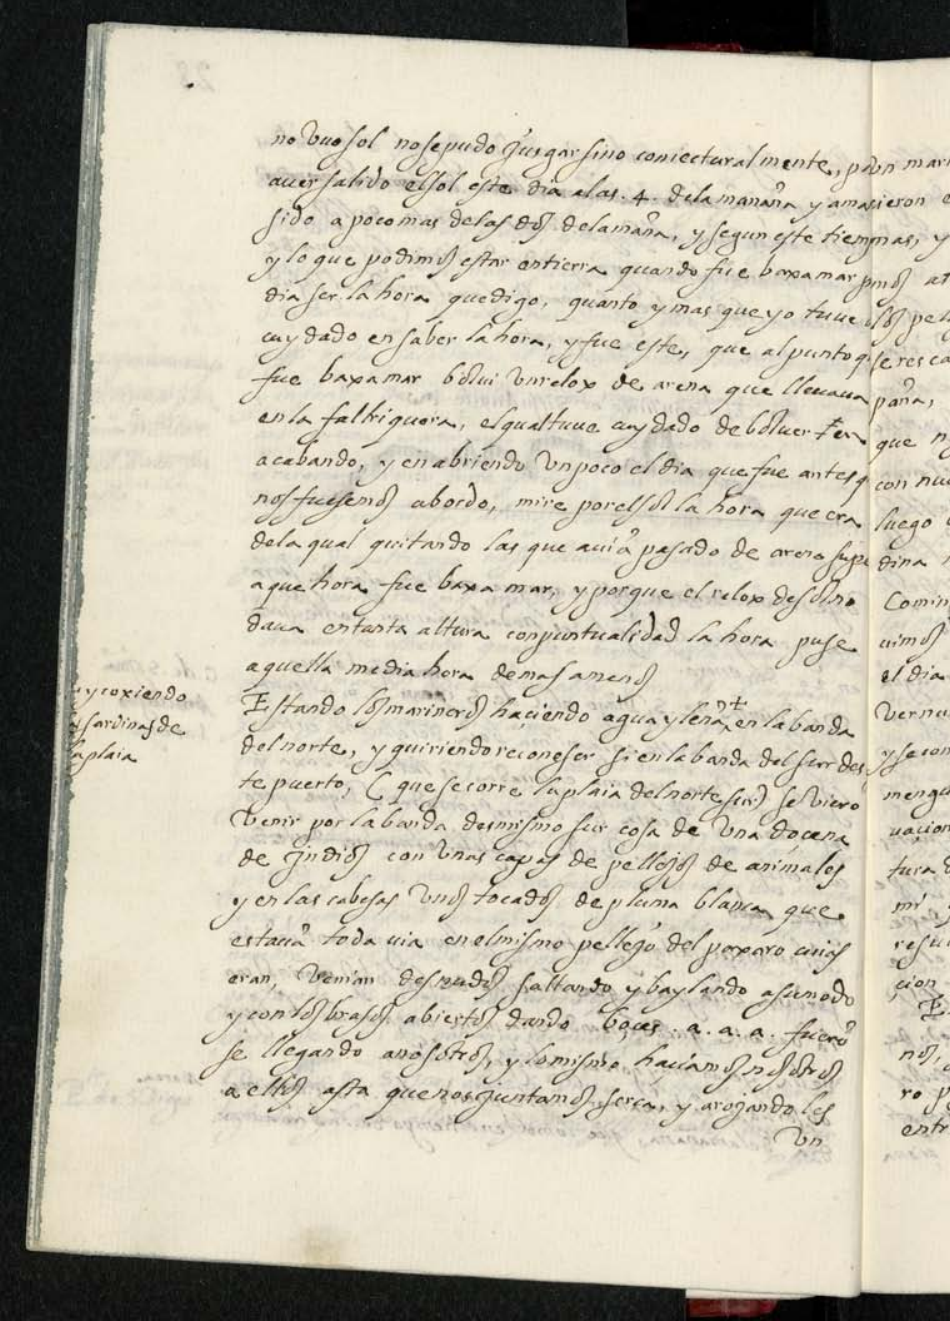 no vuo sol no se pudo jusgar sino coniecturalmente, p
auer salido el sol este dia a las .4. de la mañana y ama
sido a poco mas de las dos de la maña, y segun este tiem
y lo que podimos estar en tierra quando fue baxa mar
dia ser la hora que digo, quanto y mas que yo tuue
cuydado en saber la hora, y fue este, que al punto q
fue baxa mar bolui vn relox de arena que lleuaua
en la faltriquera, el qual tuue cuydado de boluer en
acabando, y en abriendo vn poco el dia que fue antes q
nos fuesemos abordo, mire por el sol la hora que era
de la qual quitando las que auiã pasado de arena supe
a que hora fue baxa mar, y porque el relox de sol no
daua en tanta altura con puntualidad la hora puse
aquella media hora de mas a menos
Estando los marineros haçiendo agua y leña, + en la banda
del norte, y quiriendo reconeser si en la banda del surr des
te puerto, (que se corre la plaia del norte sur) se viero
venir por la banda desmismo sur cosa de vna doçena
de jndios con vnas capas de pellejos de animales
y en las cabesas vnos tocados de pluma blanca que
estauã toda uia en el mismo pellejo del paxaro cuias
eran, venian desnudos saltando y baylando a su modo
y con los brasos abiertos dando boçes . a . a . a . fuerõ
se llegando a nosotros, y lo mismo haciamos nosotros
a ellos asta que nos juntamos serca, y arojando les
vn
y coxiendo
sardinas de
la plaia
n mar
ieron e
mas, y
pmos at
los pel
se resca
paña,
que n
con nu
luego
dina
Comin
uimos
el dia
Ver nu
y se con
mengu
uaçion
tura
mi
resu
cion
E
nos,
ro p
entr